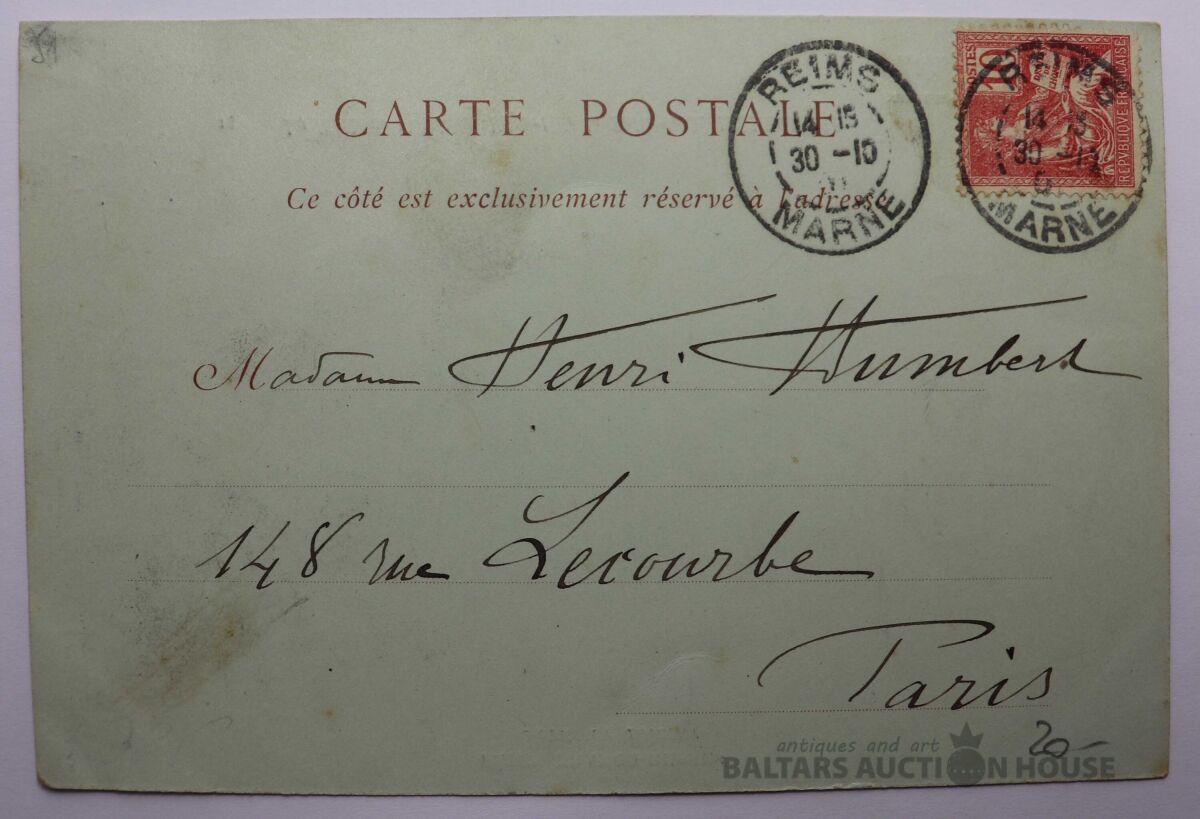 CARTE POSTALE
Ce côté est exclusivement réservé à l'adresse
REIMS
14 15
30 -10
MARNE
POSTES
10
REPVBLIQVE FRANÇAISE
REIMS
14
30 -10
MARNE
Madame Henri Humbert
148 rue Lecourbe
Paris
20-
antiques and art
BALTARS AUCTION HOUSE